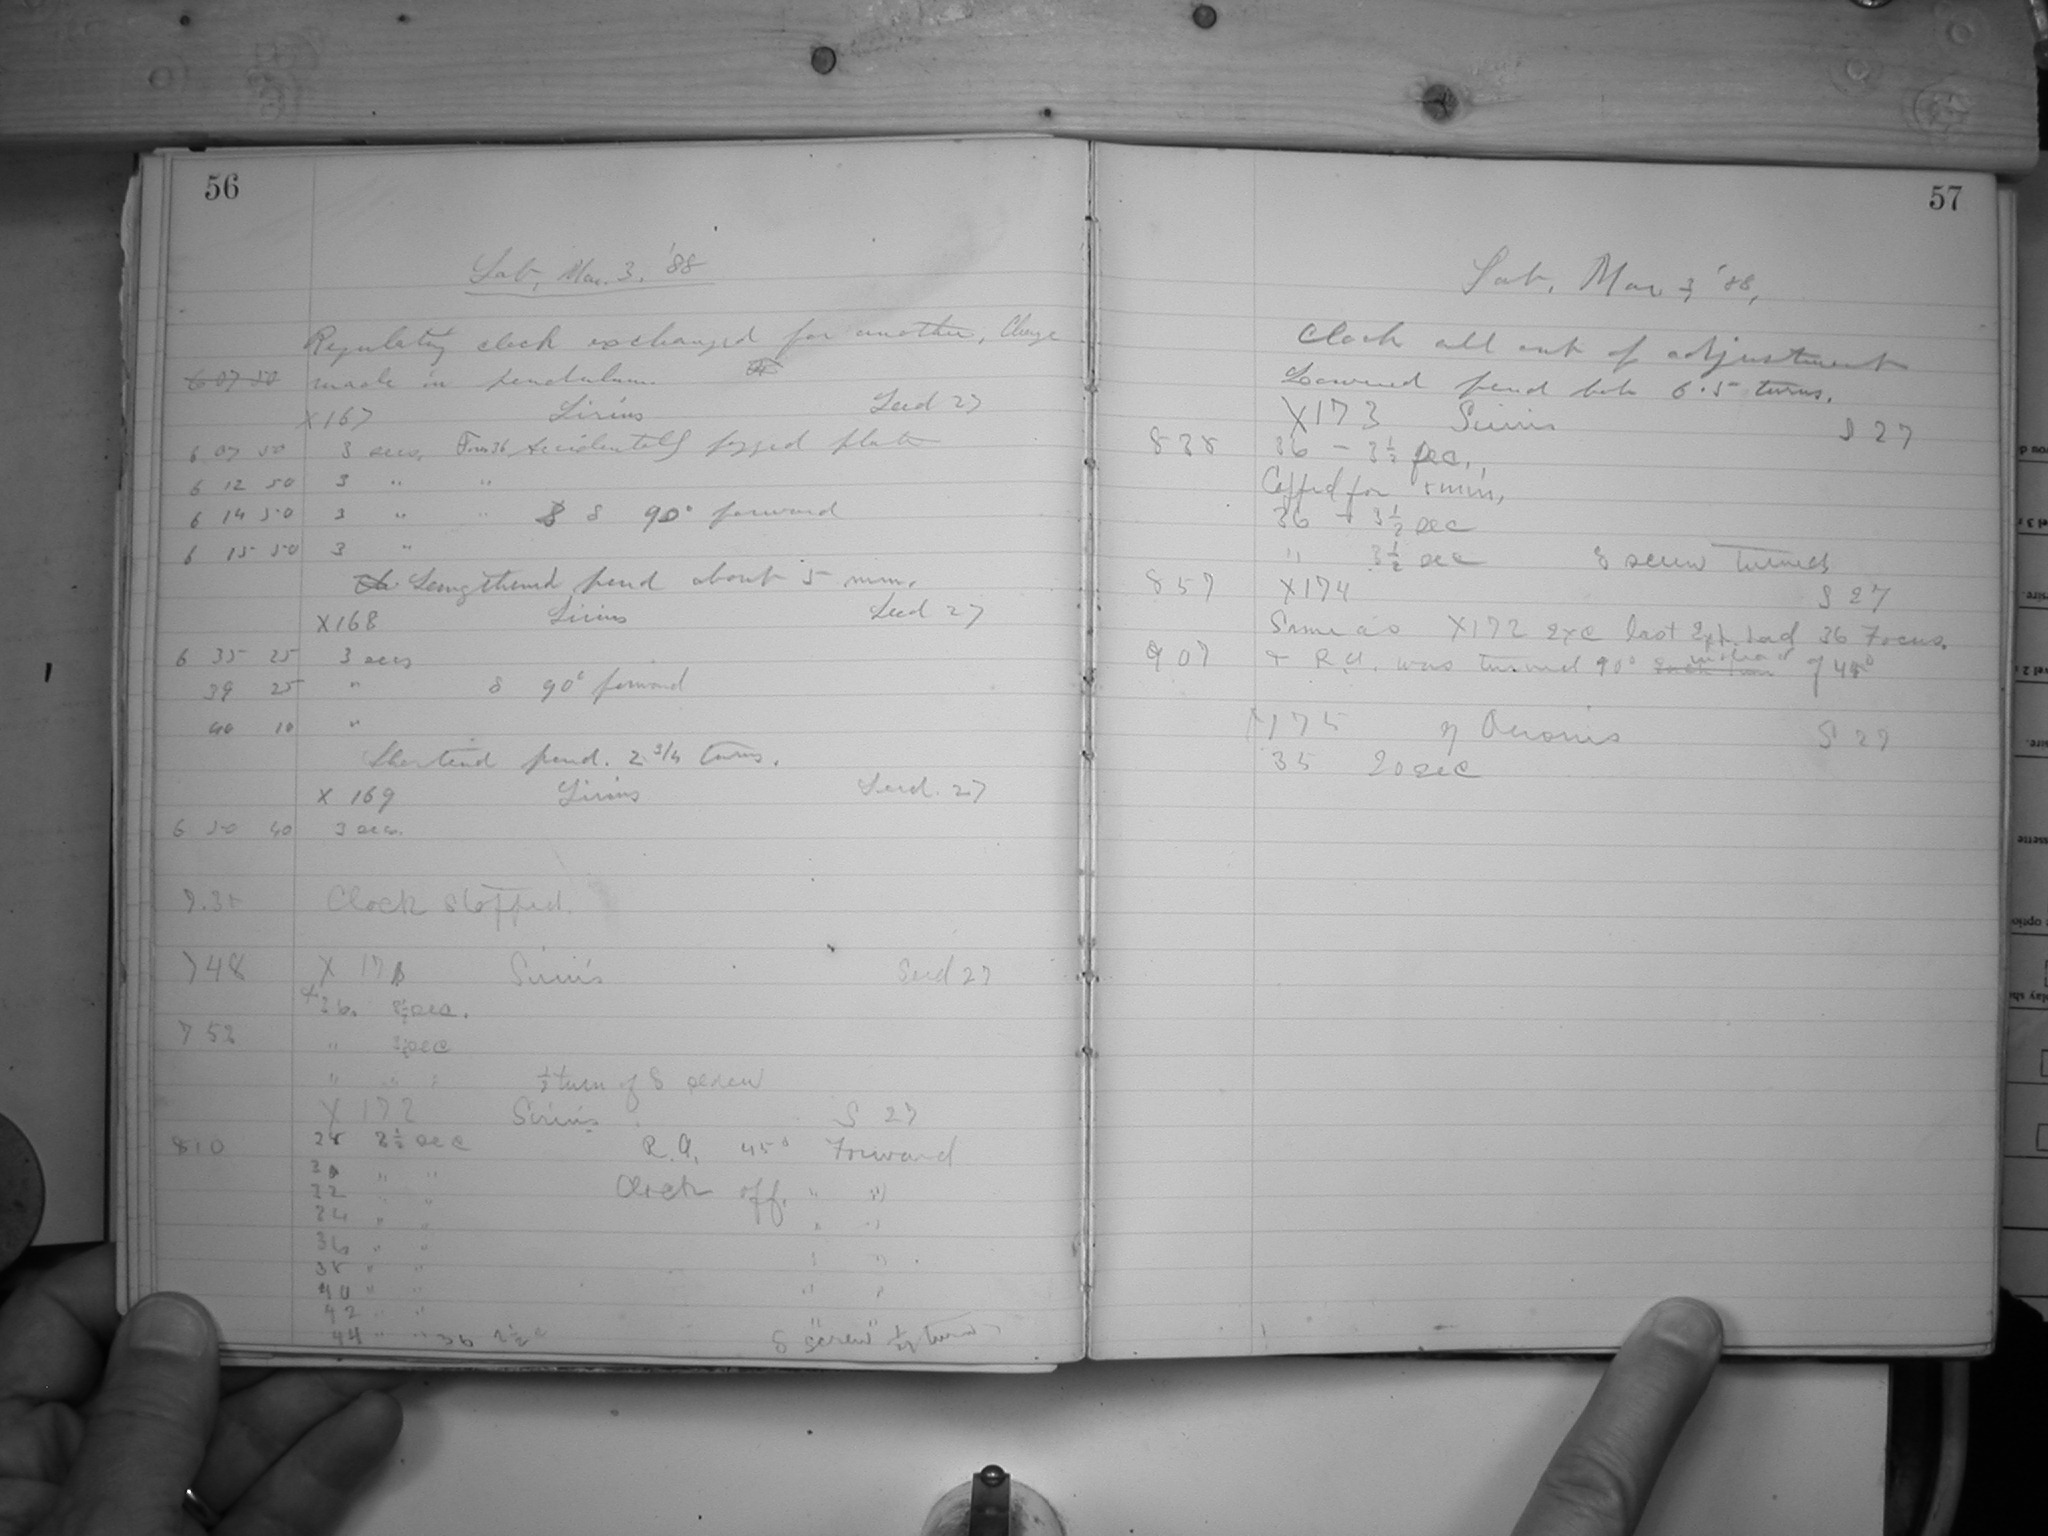 56
Sat, Mar. 3. '88
Regulating clock exchanged for another, Change
6 07 50 made in pendulum.
X167 Sirius Seed 27
6 07 50 3 secs. Foc 36 Accidentally fogged plate
6 12 50 3 " "
6 14 50 3 " " δ 90° forward
6 15 50 3 "
Lengthened pend about 5 mm.
X168 Sirius Seed 27
6 35 25 3 secs
39 25 " δ 90° forward
40 10 "
Shortend pend. 2 3/4 turns.
X 169 Sirius Seed. 27
6 50 40 3 secs.
Clock stopped.
748 X 17 Sirius Seed 27
36. sec.
7 53 " sec
" " " ½ turn of δ screw
X 172 Sirius S 27
810 28 3½ sec R.A. 45° Forward
30 " "
32 " " Clock off. " "
34 " " " "
36 " " " "
38 " "
40 " " " "
42 " "
44 " " 36 δ "screw" ½ turn
57
Sat, Mar 3, '88,
Clock all out of adjustment
Lowered pend bob 6.5 turns.
X173 Sirius S 27
838 36 - 3½ sec.,
Capped for min,
36 - 3½ sec
" 3½ sec δ screw turned
857 X174 S 27
Same as X172 exc last Exp. had 36 Focus.
907 + R.A. was turned 90° instead of 45°
X175 η Orionis S 27
35 20 sec